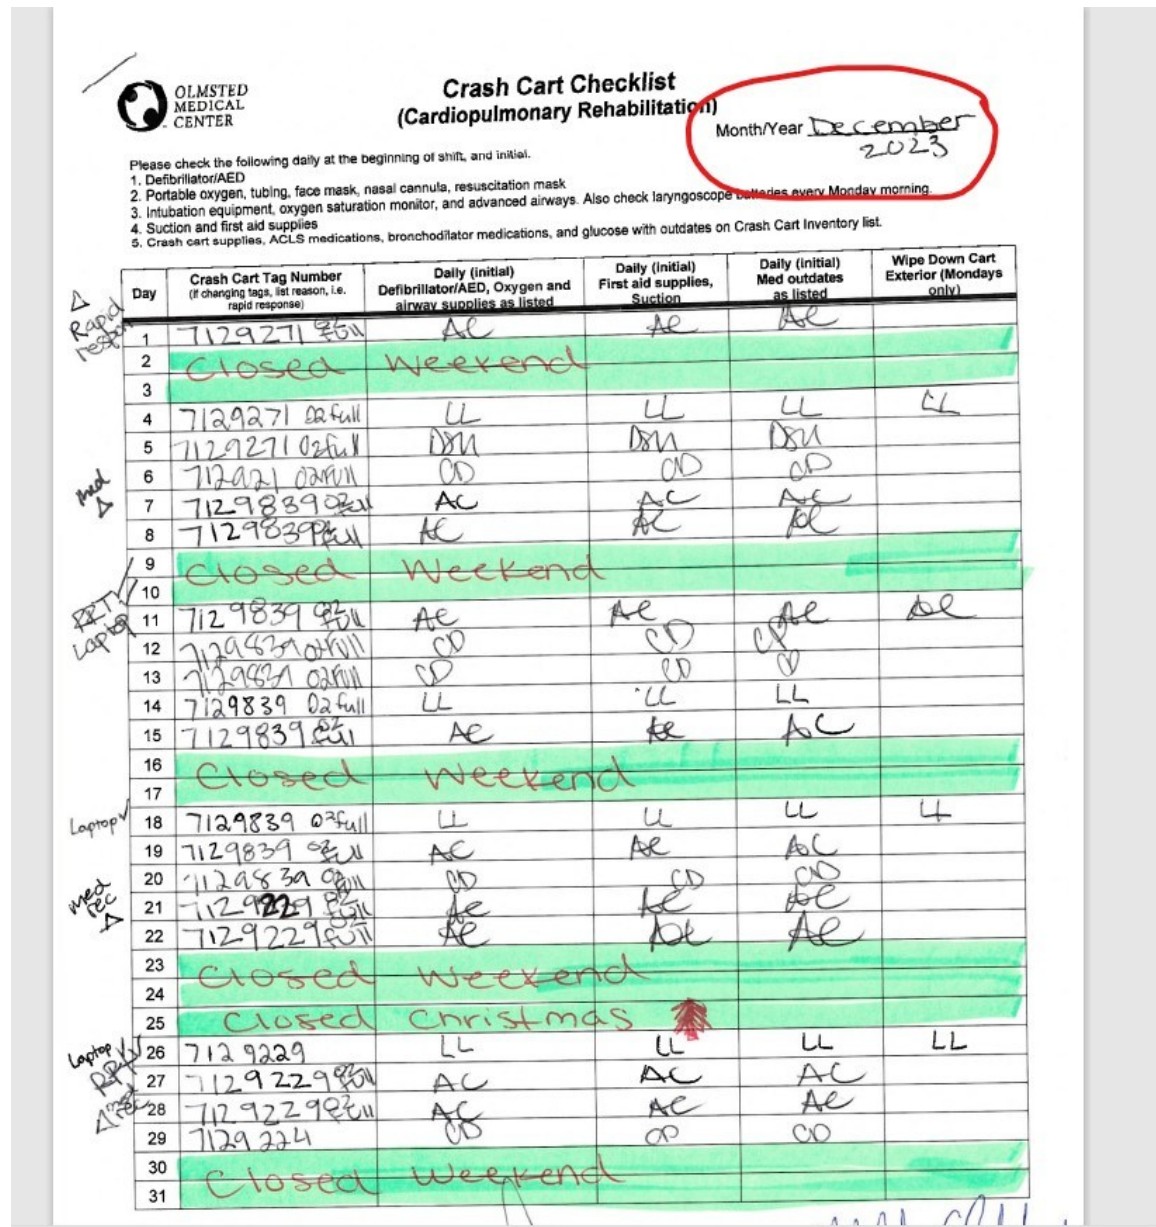 OLMSTED
MEDICAL
CENTER
Crash Cart Checklist
(Cardiopulmonary Rehabilitation)
Month/Year December
2023
Please check the following daily at the beginning of shift, and initial.
1. Defibrillator/AED
2. Portable oxygen, tubing, face mask, nasal cannula, resuscitation mask
3. Intubation equipment, oxygen saturation monitor, and advanced airways. Also check laryngoscope batteries every Monday morning.
4. Suction and first aid supplies
5. Crash cart supplies, ACLS medications, bronchodilator medications, and glucose with outdates on Crash Cart Inventory list.
Day Crash Cart Tag Number (if changing tags, list reason, i.e. rapid response) Daily (initial) Defibrillator/AED, Oxygen and airway supplies as listed Daily (initial) First aid supplies, Suction Daily (initial) Med outdates as listed Wipe Down Cart Exterior (Mondays only)
Δ Rapid
1 7129271 O2 full AC AC AC
2 Closed Weekend
3
4 7129271 O2 full LL LL LL LL
5 7129271 O2 full DSM DSM DSM
6 712921 O2 full CD CD CD
med Δ
7 7129839 O2 full AC AC AC
8 7129839 O2 full AC AC AC
9 Closed Weekend
10
Laptop
11 7129839 O2 full AC AC AC AC
12 7129839 O2 full CD CD CD
13 7129839 O2 full CD CD CD
14 7129839 O2 full LL LL LL
15 7129839 O2 full AC AC AC
16 Closed Weekend
17
Laptop ✓
18 7129839 O2 full LL LL LL LL
19 7129839 O2 full AC AC AC
20 7129839 O2 full CD CD CD
med rec Δ
21 7129229 O2 full AC AC AC
22 7129229 O2 full AC AC AC
23 Closed Weekend
24
25 Closed Christmas
Laptop ✓
26 7129229 LL LL LL LL
27 7129229 O2 full AC AC AC
Δ med rec
28 7129229 O2 full AC AC AC
29 7129224 CD CD CD
30 Closed Weekend
31